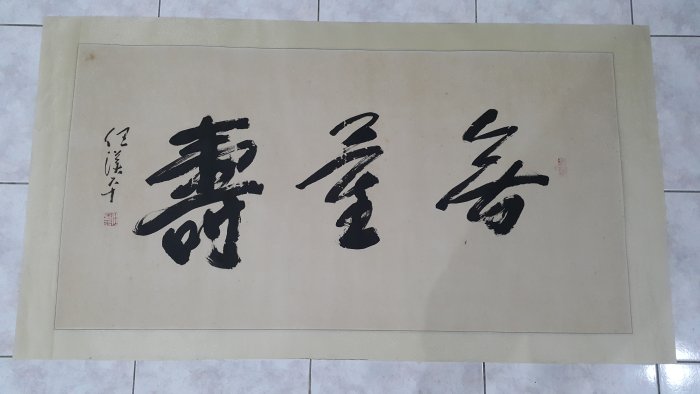 無量壽
任漢平